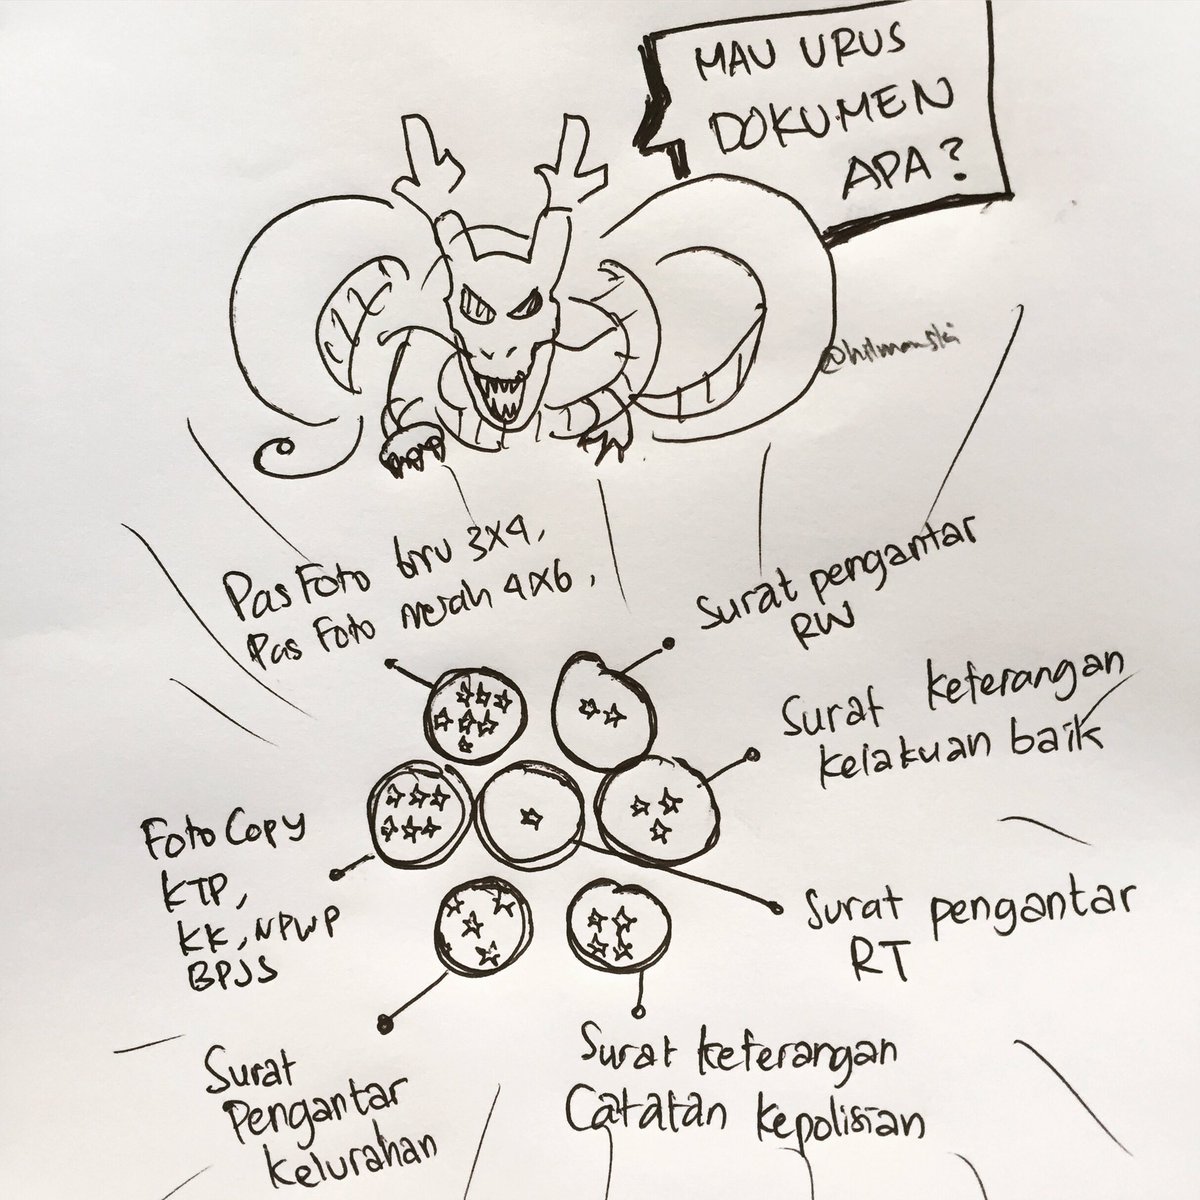 MAU URUS
DOKUMEN
APA?
@hilmanski
Pas Foto biru 3x4,
Pas Foto merah 4x6,
Surat pengantar
RW
Surat keterangan
kelakuan baik
Foto Copy
KTP,
KK, NPWP
BPJS
Surat pengantar
RT
Surat
Pengantar
Kelurahan
Surat keterangan
Catatan Kepolisian